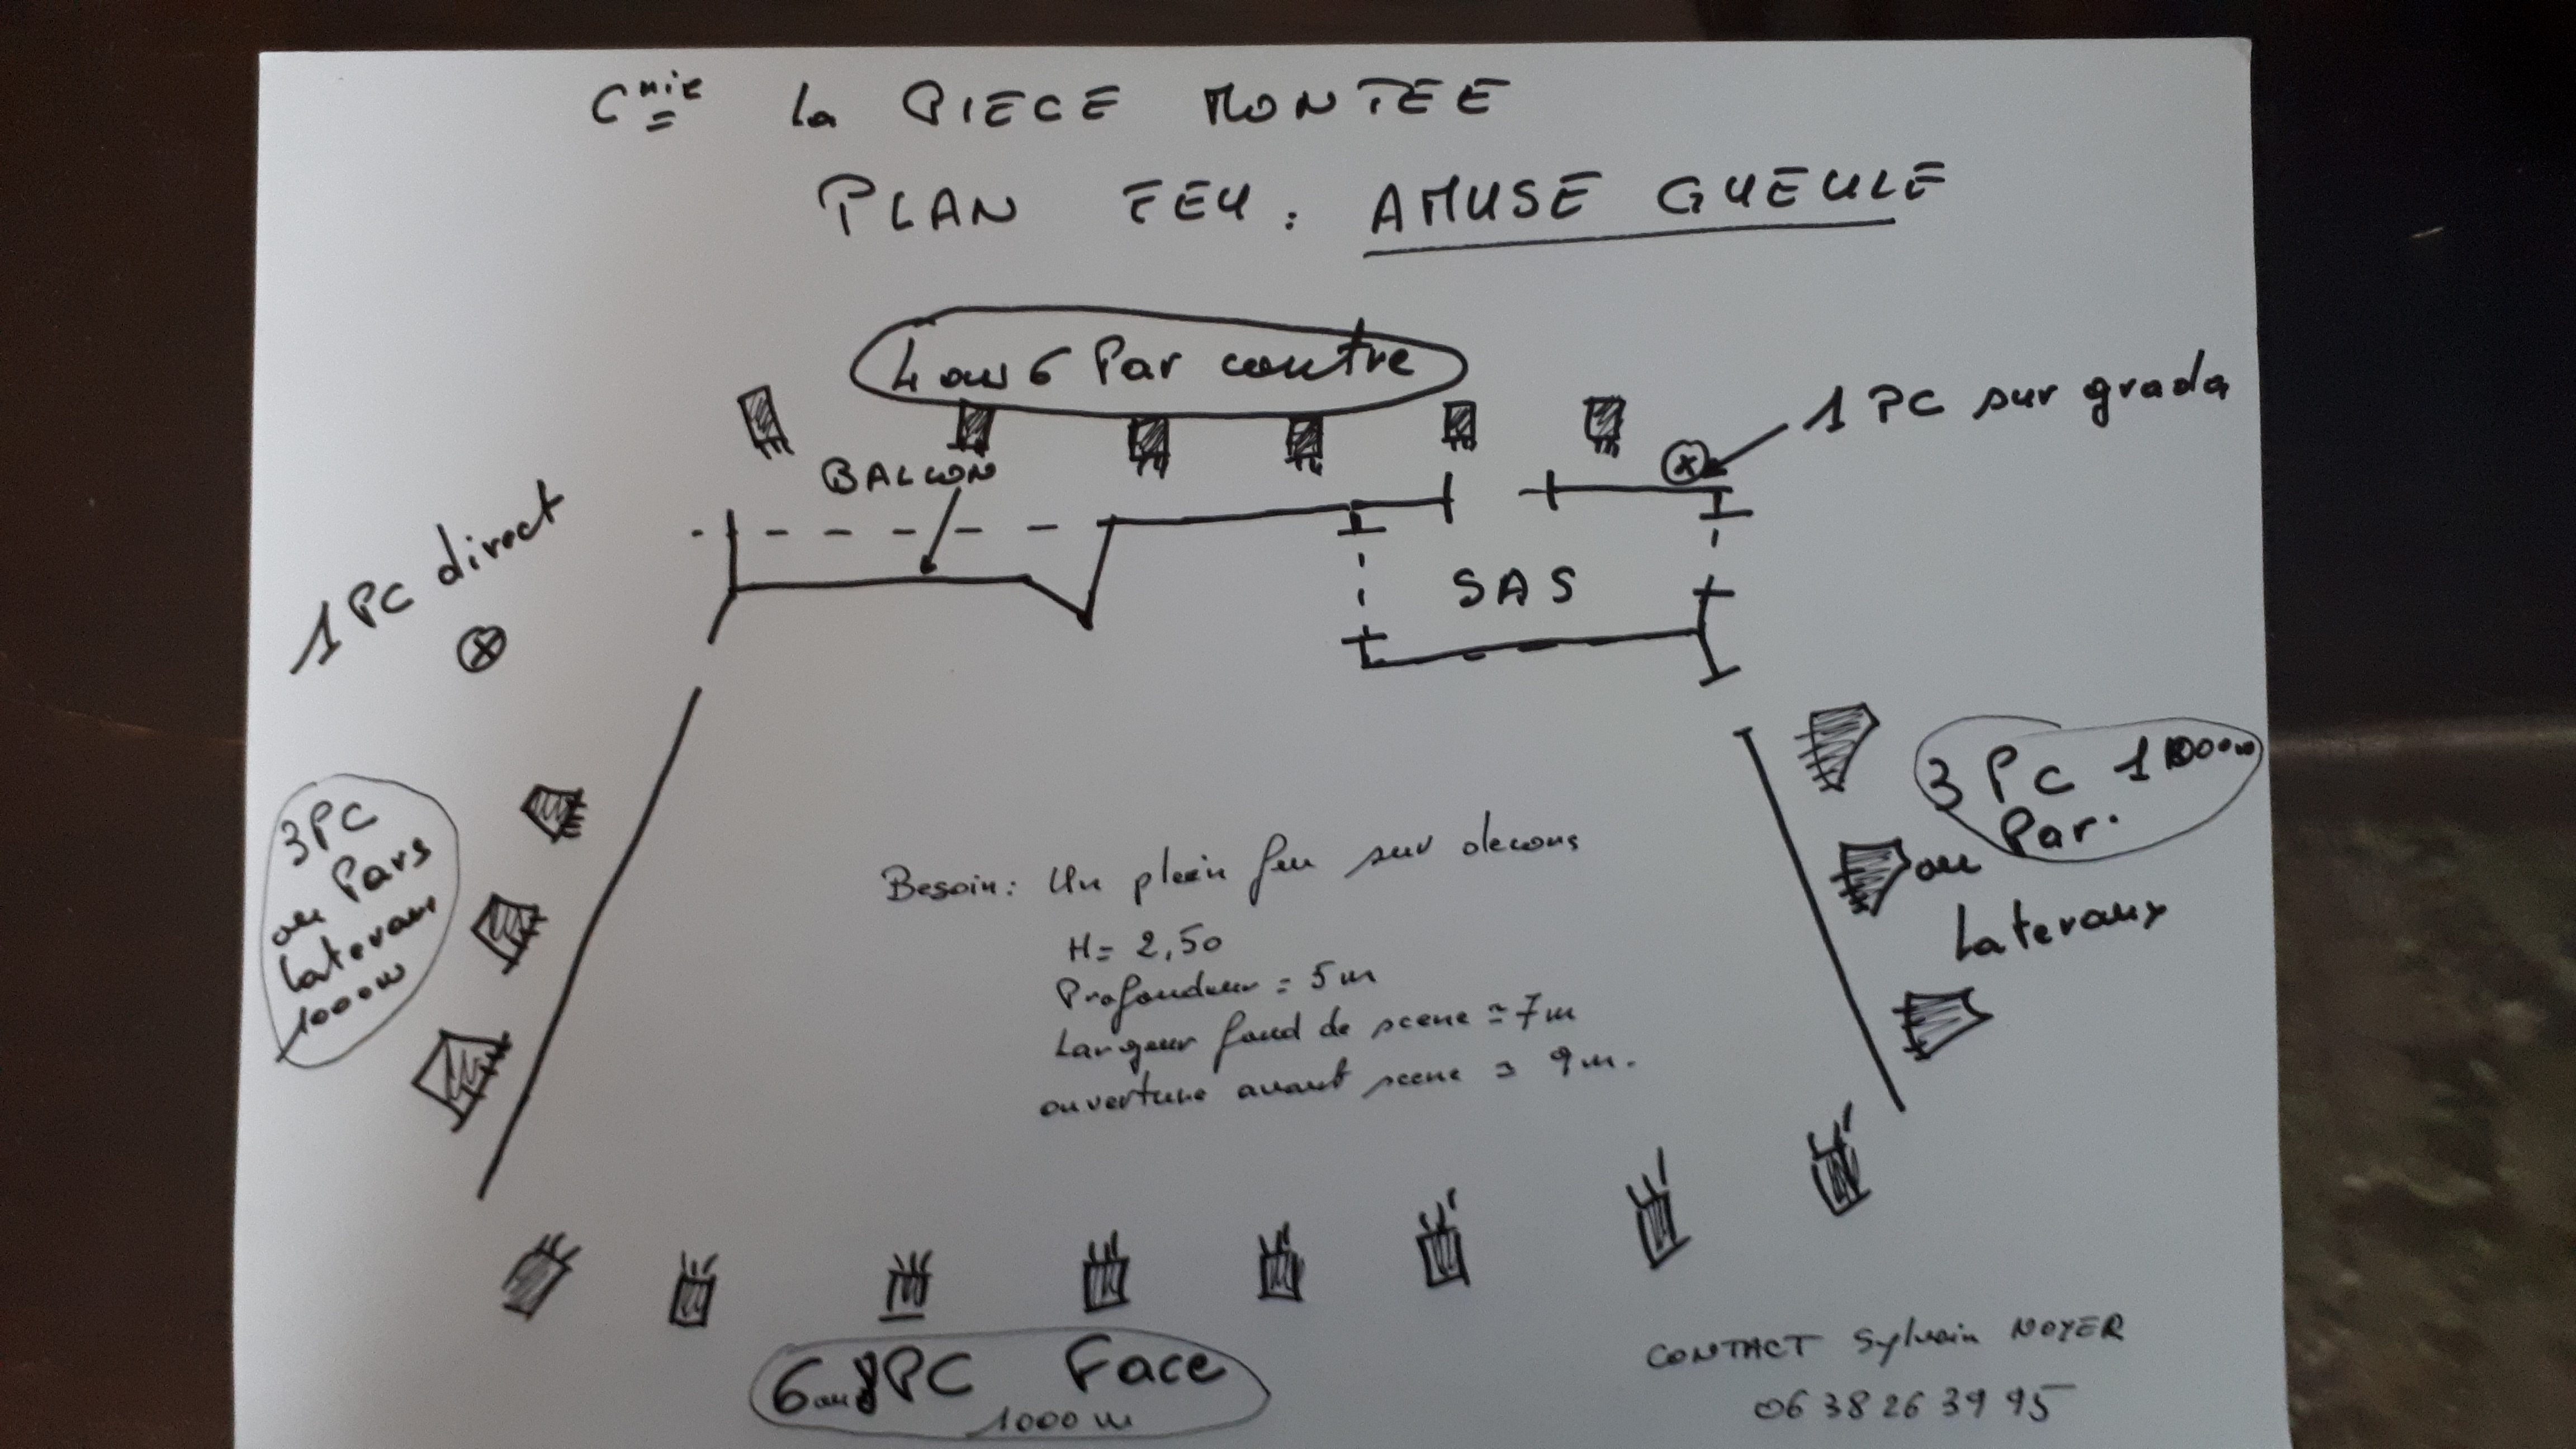 Cnie la PIECE MONTEE
PLAN FEU : AMUSE GUEULE
4 ou 6 Par contre
1 PC sur grada
BALCON
1 PC direct
SAS
3 PC 1000w
ou Par.
Lateraux
3 PC
ou Pars
Lateraux
1000w
Besoin : Un plein feu sur decors
H = 2,50
Profondeur = 5m
Largeur fond de scene = 7m
ouverture avant scene = 9m.
6 ou 8 PC Face
1000 w
CONTACT Sylvain NOYER
06 38 26 39 95